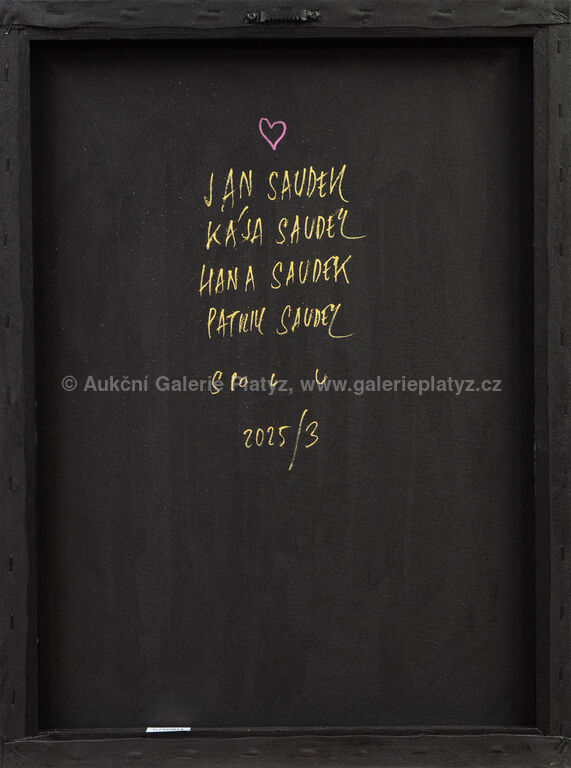 JAN SAUDEK
KÁJA SAUDEK
HANA SAUDEK
PATRIK SAUDEK
© Aukční Galerie Platýz, www.galerieplatyz.cz
2025/3